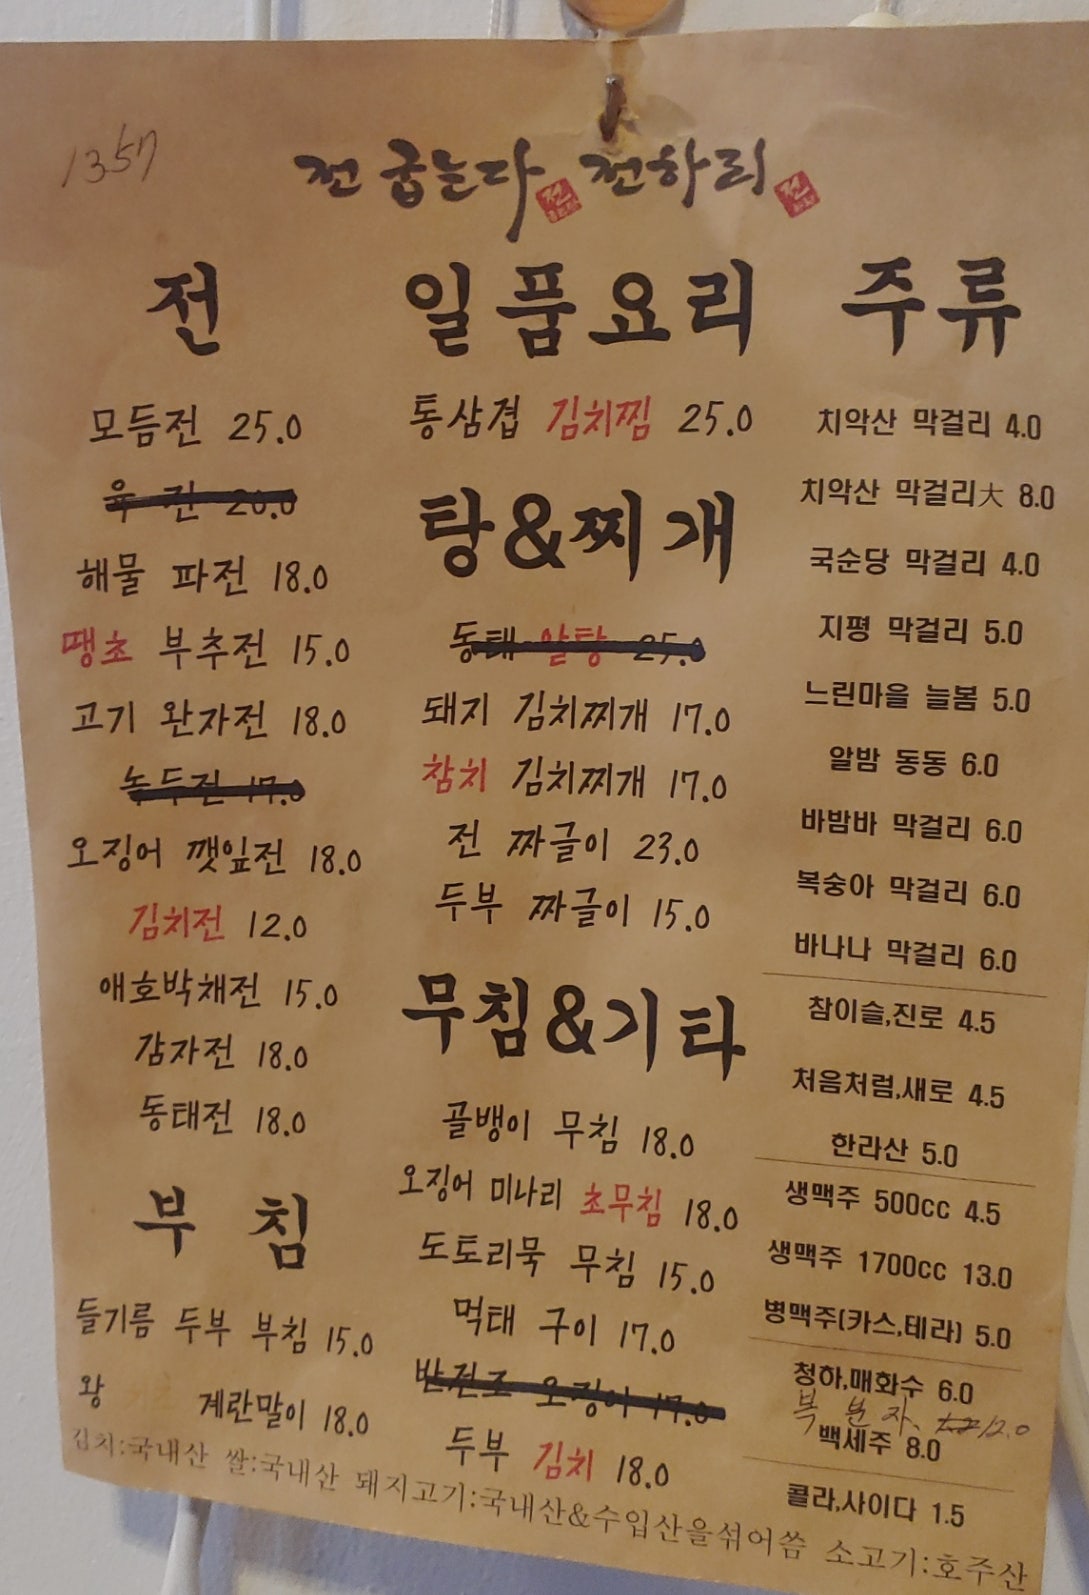 1357
전 굽는다 전 전하리 전
전
모듬전 25.0
육 전 20.0
해물 파전 18.0
땡초 부추전 15.0
고기 완자전 18.0
녹두전 17.0
오징어 깻잎전 18.0
김치전 12.0
애호박채전 15.0
감자전 18.0
동태전 18.0
부 침
들기름 두부 부침 15.0
왕 계란말이 18.0
일품요리
통삼겹 김치찜 25.0
탕&찌개
동태 알탕 25.0
돼지 김치찌개 17.0
참치 김치찌개 17.0
전 짜글이 23.0
두부 짜글이 15.0
무침&기타
골뱅이 무침 18.0
오징어 미나리 초무침 18.0
도토리묵 무침 15.0
먹태 구이 17.0
반건조 오징어 17.0
두부 김치 18.0
주류
치악산 막걸리 4.0
치악산 막걸리大 8.0
국순당 막걸리 4.0
지평 막걸리 5.0
느린마을 늘봄 5.0
알밤 동동 6.0
바밤바 막걸리 6.0
복숭아 막걸리 6.0
바나나 막걸리 6.0
참이슬,진로 4.5
처음처럼,새로 4.5
한라산 5.0
생맥주 500cc 4.5
생맥주 1700cc 13.0
병맥주(카스,테라) 5.0
청하,매화수 6.0
복 분 자 12.0
백세주 8.0
콜라,사이다 1.5
김치:국내산 쌀:국내산 돼지고기:국내산&수입산을섞어씀 소고기:호주산